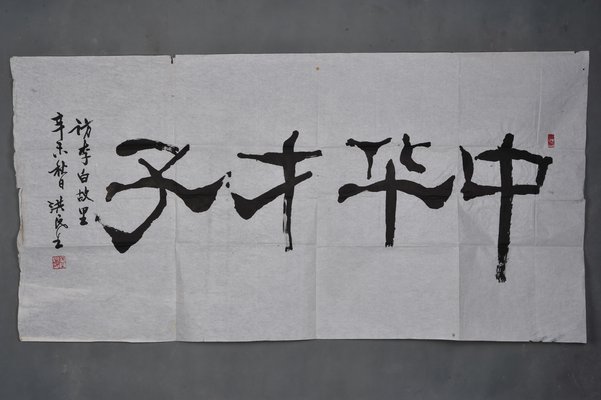 中华才子
访李白故里
辛未秋日 洪民生